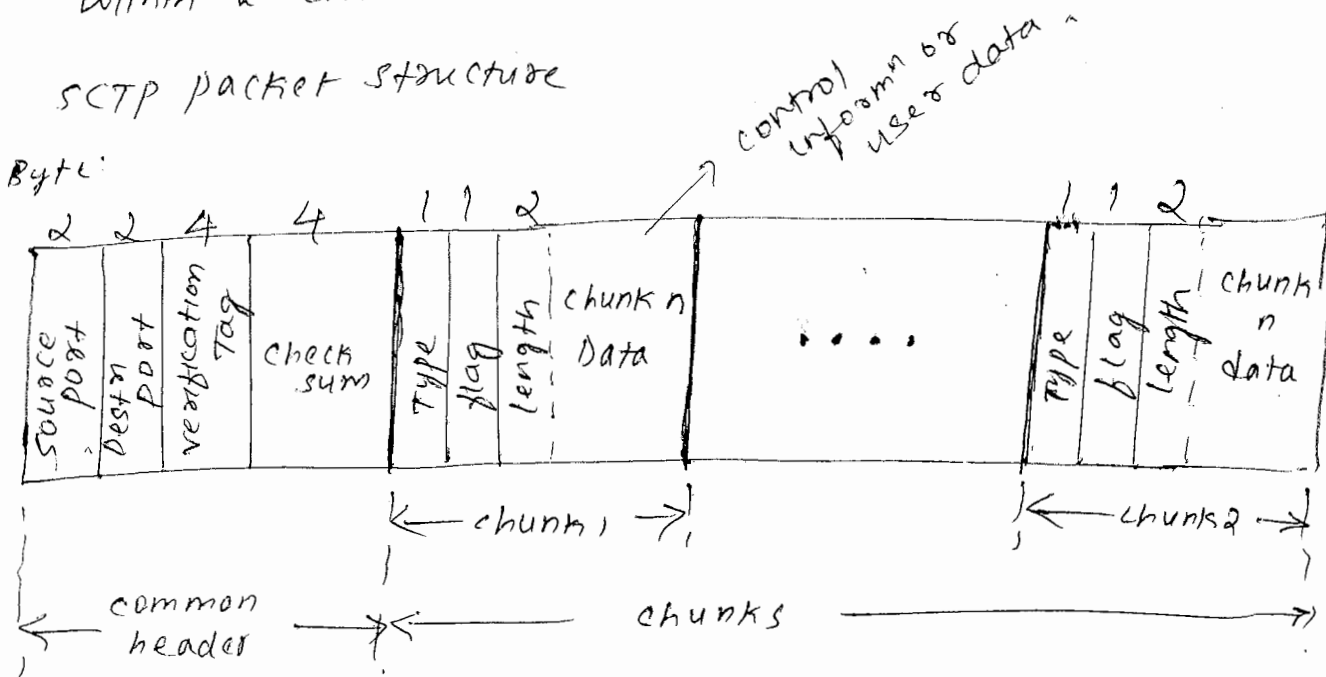 within a
SCTP packet structure
control
informn or
user data.
Byte:
2 2 4 4 1 1 2 1 1 2
source
port
Destn
port
verification
Tag
check
sum
Type
flag
length
chunk n
Data
....
Type
flag
length
chunk
n
data
chunk 1
chunk 2
common
header
chunks